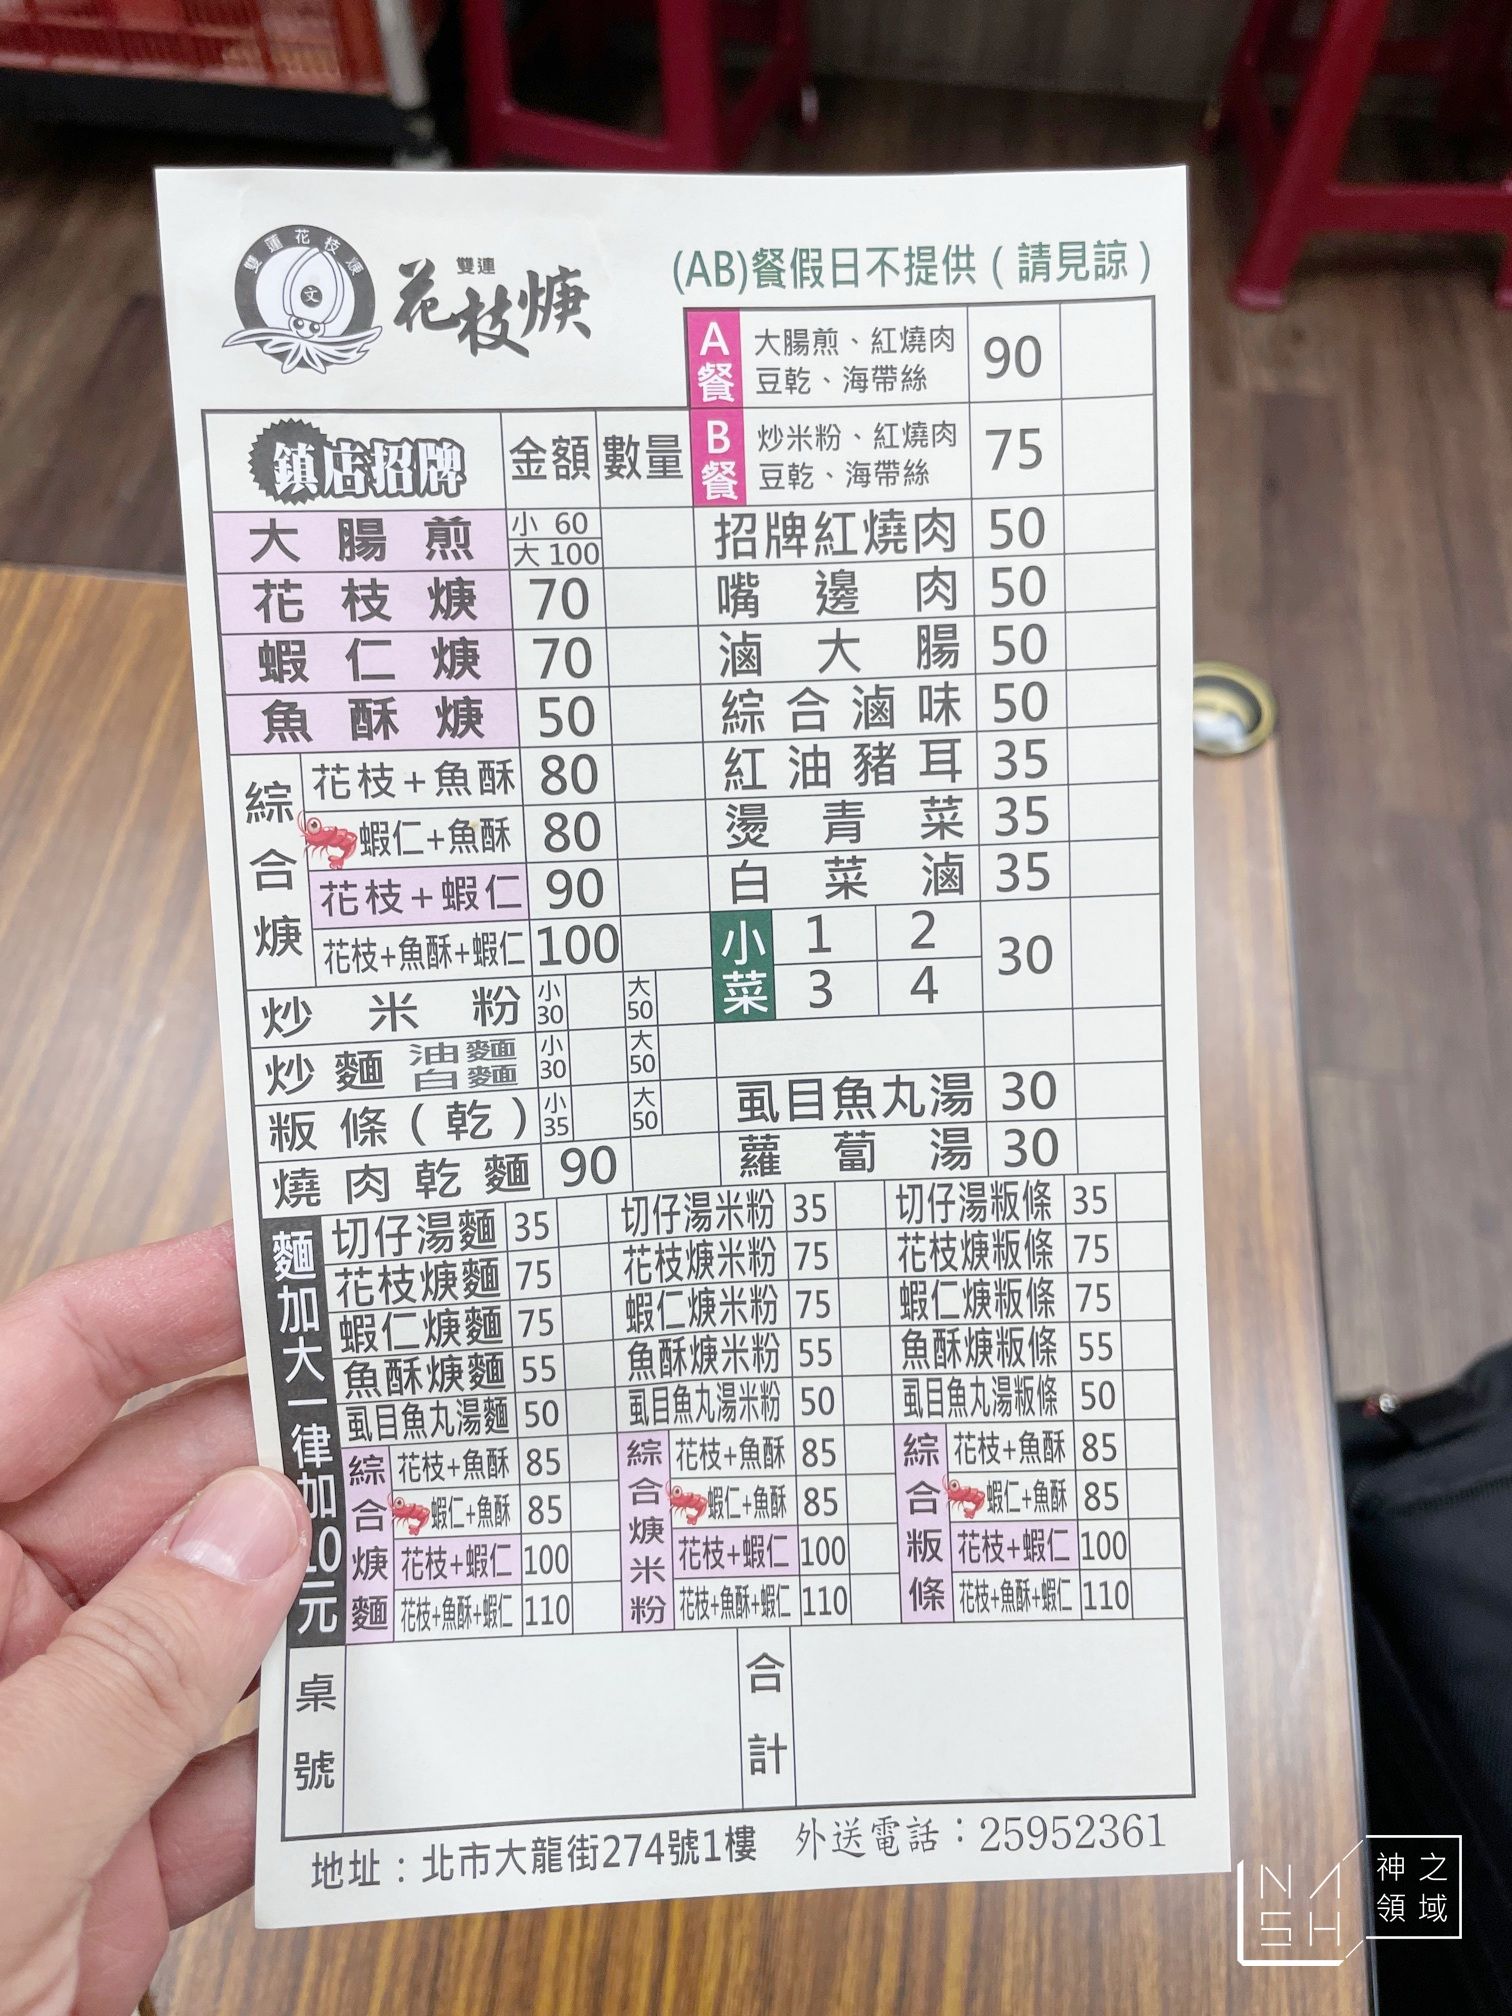 雙蓮花枝焿
文
雙連
花枝焿
(AB)餐假日不提供(請見諒)
A餐 大腸煎、紅燒肉 豆乾、海帶絲 90
B餐 炒米粉、紅燒肉 豆乾、海帶絲 75
鎮店招牌 金額 數量
大腸煎 小 60 大 100
花枝焿 70
蝦仁焿 70
魚酥焿 50
綜合焿
花枝+魚酥 80
蝦仁+魚酥 80
花枝+蝦仁 90
花枝+魚酥+蝦仁 100
炒米粉 小30 大50
炒麵 油麵 白麵 小30 大50
粄條(乾) 小35 大50
燒肉乾麵 90
招牌紅燒肉 50
嘴邊肉 50
滷大腸 50
綜合滷味 50
紅油豬耳 35
燙青菜 35
白菜滷 35
小菜 1 2 3 4 30
虱目魚丸湯 30
蘿蔔湯 30
麵加大一律加10元
切仔湯麵 35 切仔湯米粉 35 切仔湯粄條 35
花枝焿麵 75 花枝焿米粉 75 花枝焿粄條 75
蝦仁焿麵 75 蝦仁焿米粉 75 蝦仁焿粄條 75
魚酥焿麵 55 魚酥焿米粉 55 魚酥焿粄條 55
虱目魚丸湯麵 50 虱目魚丸湯米粉 50 虱目魚丸湯粄條 50
綜合焿麵 綜合焿米粉 綜合粄條
花枝+魚酥 85 花枝+魚酥 85 花枝+魚酥 85
蝦仁+魚酥 85 蝦仁+魚酥 85 蝦仁+魚酥 85
花枝+蝦仁 100 花枝+蝦仁 100 花枝+蝦仁 100
花枝+魚酥+蝦仁 110 花枝+魚酥+蝦仁 110 花枝+魚酥+蝦仁 110
桌號 合計
地址：北市大龍街274號1樓 外送電話：25952361
NASH
神之領域